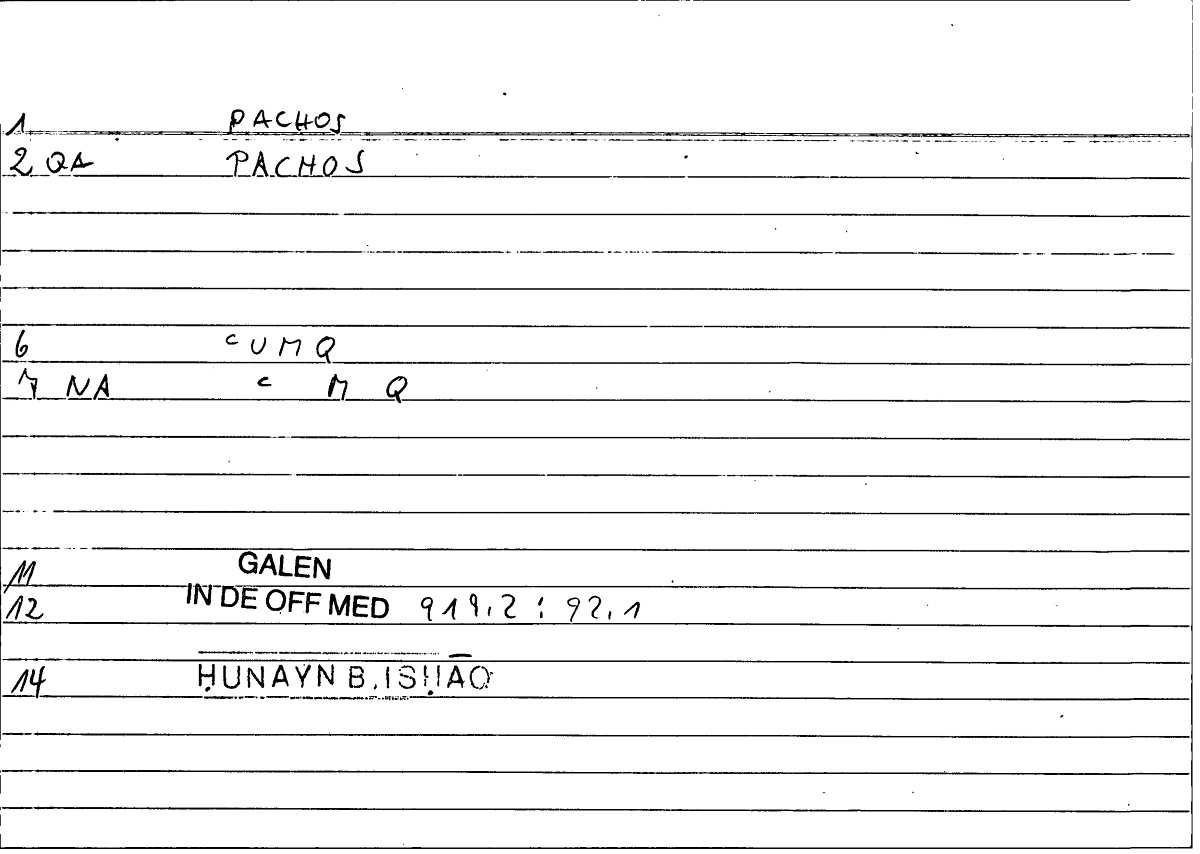 1 PACHOS
2 QA PACHOS
6 ᶜUMQ
7 NA ᶜ M Q
11 GALEN
12 IN DE OFF MED 919,2 : 92,1
14 ḤUNAYN B. ISḤĀQ